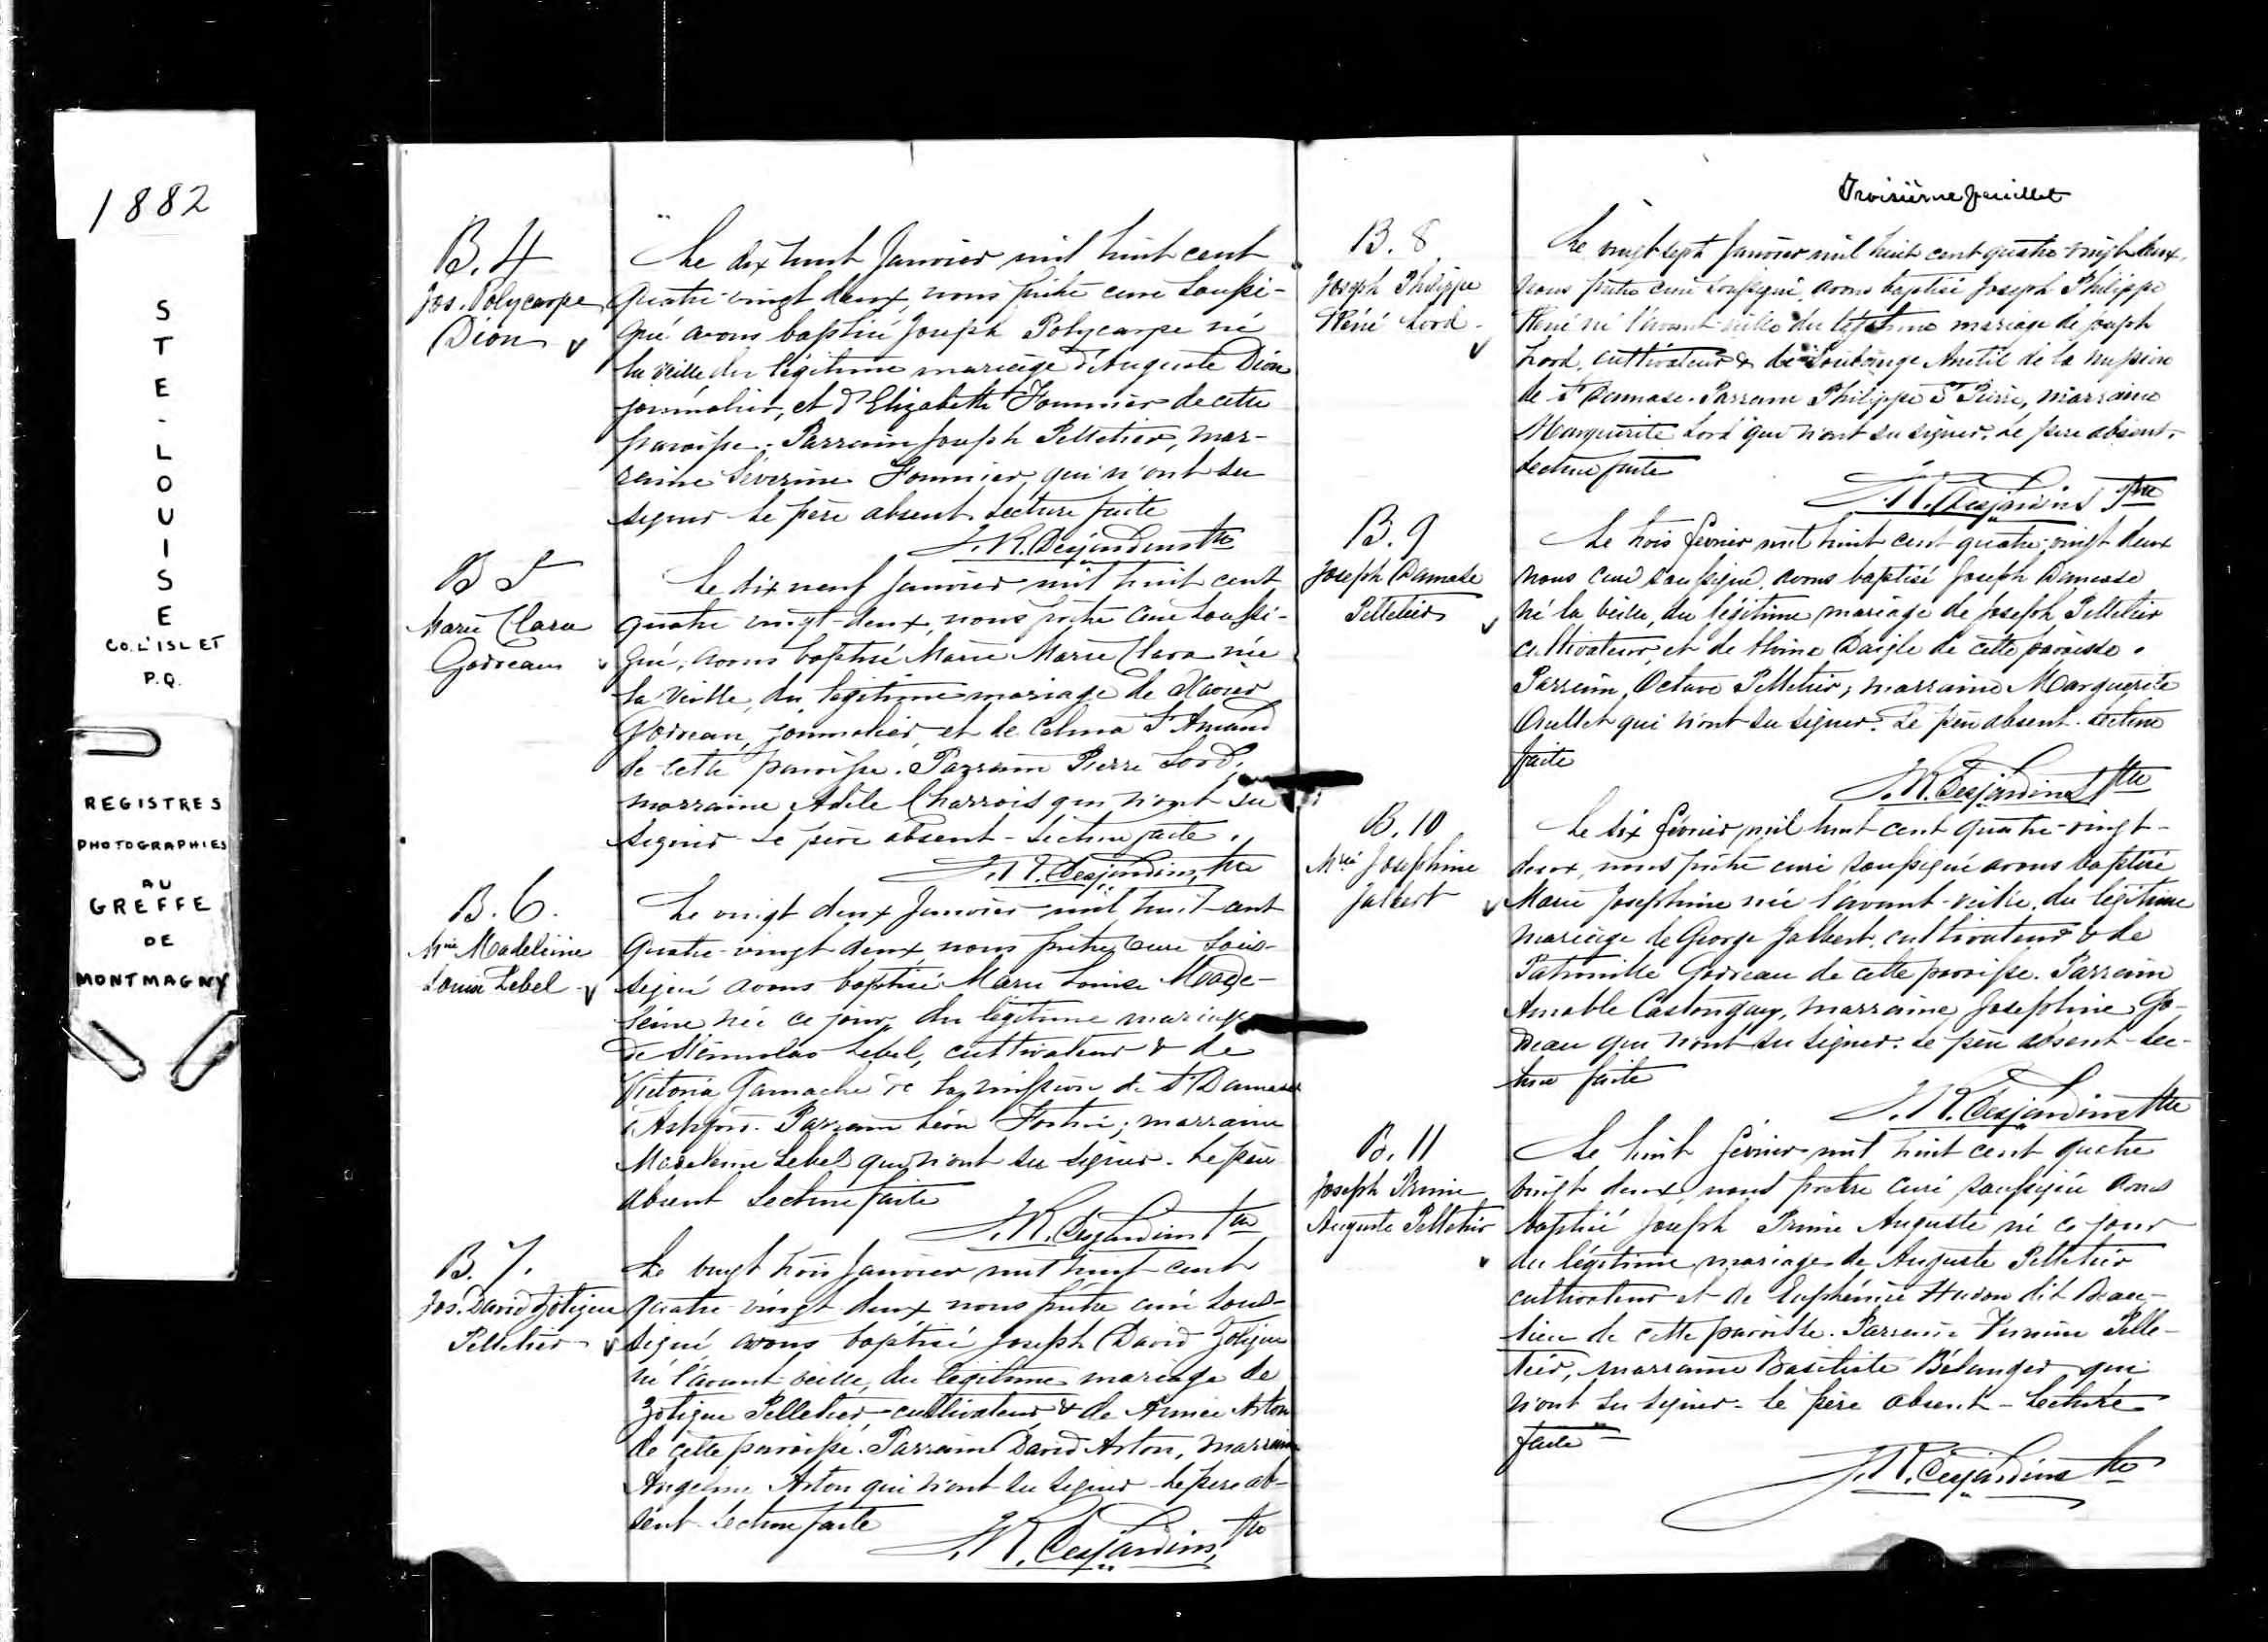 1882
STE-LOUISE
CO. L'ISLET
P.Q.
REGISTRES
PHOTOGRAPHIES
AU
GREFFE
DE
MONTMAGNY
B. 4
Jos. Polycarpe
Dion
Le dix huit Janvier mil huit cent
quatre-vingt deux, nous prêtre curé soussi-
gné avons baptisé Joseph Polycarpe né
la veille du légitime mariage d'Auguste Dion
journalier, et d'Elizabeth Fournier de cette
paroisse. Parrain Joseph Pelletier, mar-
raine Séverine Fournier qui n'ont su
signer le père absent. Lecture faite
J. R. Desjardins Ptre
B 5
Marie Clara
Godreau
Le dix neuf Janvier mil huit cent
quatre-vingt-deux, nous prêtre curé soussi-
gné, avons baptisé Marie Marie Clara née
la veille, du légitime mariage de Xavier
Godreau, journalier, et de Celma St Amand
de cette paroisse. Parrain Pierre Lord,
marraine Adèle Charrois qui n'ont su
signer le père absent - Lecture faite.
J. R. Desjardins, Ptre
B. 6.
Mrie Madeleine
Louise Lebel
Le vingt deux Janvier mil huit cent
quatre-vingt deux, nous prêtre curé sous-
signé avons baptisé Marie Louise Made-
leine née ce jour, du légitime mariage
de Stanislas Lebel, cultivateur & de
Victoria Gamache de la mission de St Damase
d'Ashford. Parrain Léon Fortin; marraine
Madeleine Lebel qui n'ont su signer. Le père
absent Lecture faite
J. R. Desjardins Ptre
B. 7.
Jos. David Zotique
Pelletier
Le vingt trois Janvier mil huit cent
quatre-vingt deux nous prêtre curé sous-
signé, avons baptisé Joseph David Zotique
né l'avant-veille, du légitime mariage de
Zotique Pelletier, cultivateur & de Aimée Arton
de cette paroisse. Parrain David Arton, marraine
Angelme Arton qui n'ont su signer - le père ab-
sent. Lecture faite
J. R. Desjardins, Ptre
Troisième feuillet
B. 8
Joseph Philippe
René Lord
Le vingt-sept Janvier mil huit cent quatre-vingt deux,
nous prêtre curé soussigné, avons baptisé Joseph Philippe
René né l'avant-veille du légitime mariage de Joseph
Lord, cultivateur & de Soulange Anctil de la mission
de St Damase. Parrain Philippe St Pierre, marraine
Marguerite Lord qui n'ont su signer. Le père absent.
Lecture faite
J. R. Desjardins Ptre
B. 9
Joseph Damase
Pelletier
Le trois février mil huit cent quatre-vingt deux
nous curé soussigné, avons baptisé Joseph Damase
né la veille, du légitime mariage de Joseph Pelletier
cultivateur, et de Elvine Daigle de cette paroisse.
Parrain, Octave Pelletier, marraine Marguerite
Ouellet qui n'ont su signer. Le père absent. Lecture
faite
J. R. Desjardins Ptre
B. 10
Mrie Josephine
Jalbert
Le six février mil huit cent quatre-vingt-
deux, nous prêtre curé soussigné avons baptisé
Marie Josephine née l'avant-veille, du légitime
mariage de George Jalbert, cultivateur & de
Pétronille Godreau de cette paroisse. Parrain
Amable Castonguay, marraine Josephine Go-
dreau qui n'ont su signer. Le père absent - Lec-
ture faite
J. R. Desjardins Ptre
B. 11
Joseph Prime
Auguste Pelletier
Le huit février mil huit cent quatre
vingt deux, nous prêtre curé soussigné avons
baptisé Joseph Prime Auguste né ce jour
du légitime mariage de Auguste Pelletier
cultivateur et de Euphémie Hudon dit Beau-
lieu de cette paroisse. Parrain Firmin Pelle-
tier, marraine Basilisse Bélanger qui
n'ont su signer - le père absent - Lecture
faite
J. R. Desjardins Ptre